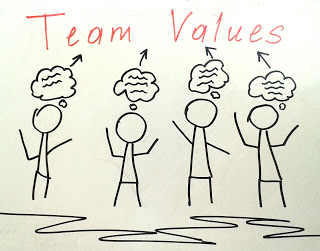 Team Values